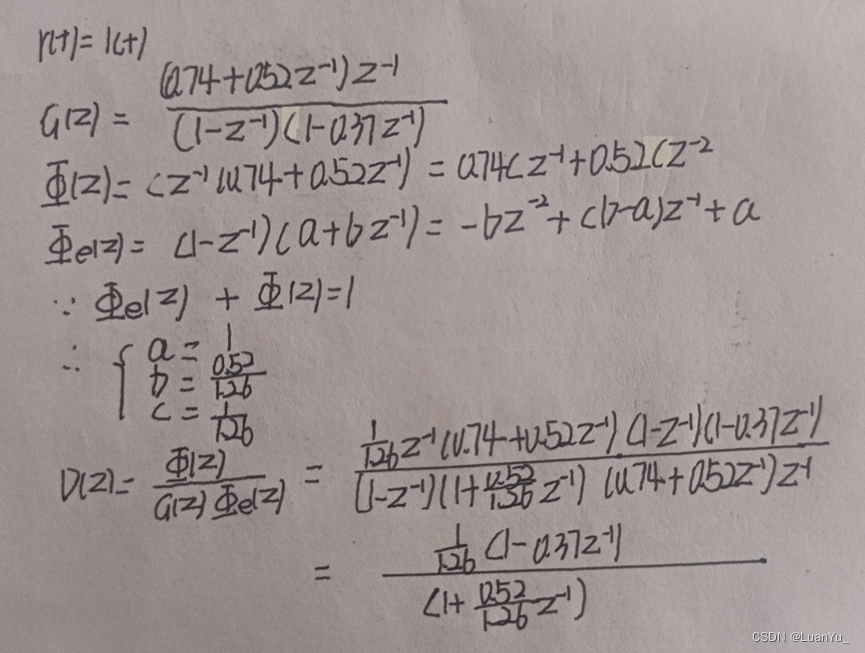 r(t)=1(t)
G(z) = (0.74+0.52z⁻¹)z⁻¹ / (1-z⁻¹)(1-0.37z⁻¹)
Φ(z)= cz⁻¹(0.74+0.52z⁻¹) = 0.74cz⁻¹+0.52cz⁻²
Φe(z)= (1-z⁻¹)(a+bz⁻¹)= -bz⁻²+(b-a)z⁻¹+a
∵ Φe(z) + Φ(z)=1
∴ { a = 1
b = 0.52/1.26
c = 1/1.26
D(z)= Φ(z) / G(z)Φe(z) = 1/1.26 z⁻¹(0.74+0.52z⁻¹)(1-z⁻¹)(1-0.37z⁻¹) / (1-z⁻¹)(1+0.52/1.26 z⁻¹)(0.74+0.52z⁻¹)z⁻¹
= 1/1.26 (1-0.37z⁻¹) / (1+0.52/1.26 z⁻¹)
CSDN @LuanYu_